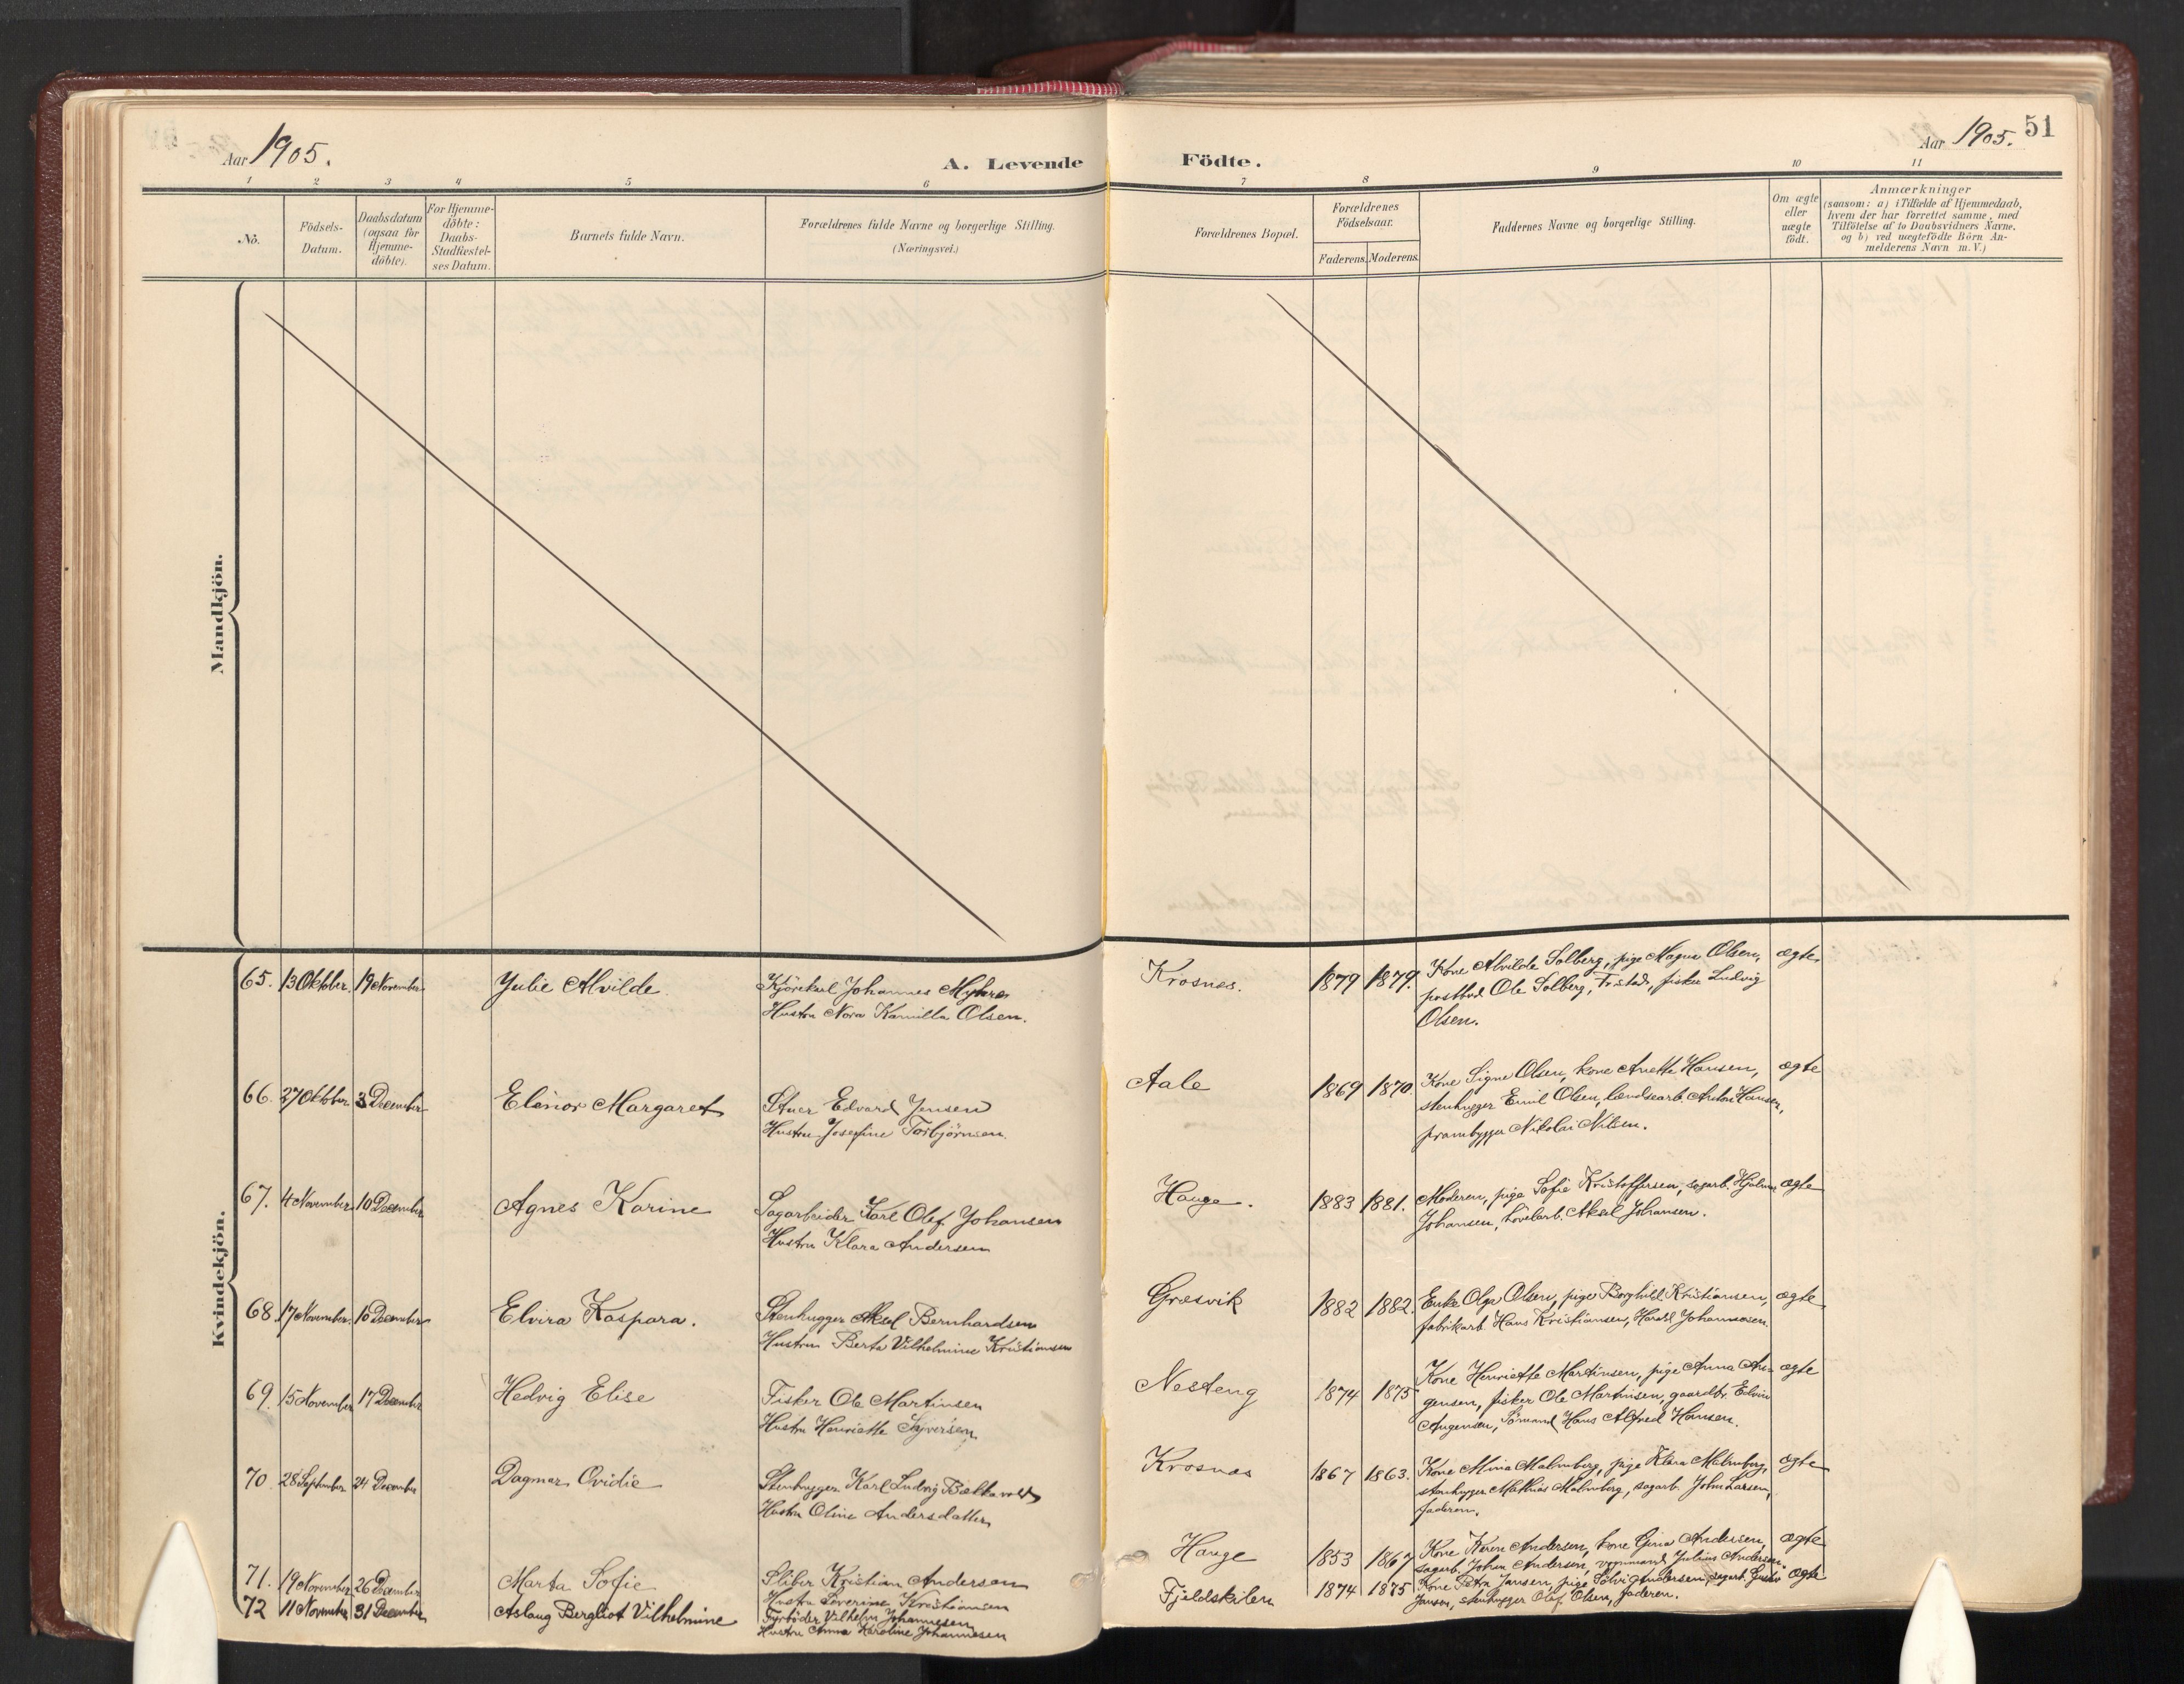 Aar 1905.
A. Levende Födte.
51
Aar 1905.
1 2 3 4 5 6 7 8 9 10 11
No.
Födsels-
Datum.
Daabsdatum
(ogsaa for
Hjemme-
döbte).
For Hjemme-
döbte:
Daabs-
Stadfæstel-
ses Datum.
Barnets fulde Navn.
Forældrenes fulde Navne og borgerlige Stilling.
(Næringsvei.)
Forældrenes Bopæl.
Forældrenes
Födselsaar.
Faderens. Moderens.
Faddernes Navne og borgerlige Stilling.
Om ægte
eller
uægte
födt.
Anmærkninger
(saasom: a) i Tilfælde af Hjemmedaab,
hvem der har forrettet samme, med
Tilföielse af to Daabsvidners Navne,
og b) ved uægtefödte Börn An-
melderens Navn m. V.)
Mandkjön.
Kvindekjön.
65. 13 Oktober. 19 November Julie Alvilde Kjörekarl Johannes Myhre Krosnes. 1879 1879. Kone Alvilde Solberg, pige Magna Olsen, ægte
Hustru Nora Kamilla Olsen. postbud Ole Solberg, Fr.stad, fisker Ludvig
Olsen.
66. 27 Oktober 3 December Elinor Margaret Stuer Edvard Jensen Aale 1869 1870. Kone Signe Olsen, kone Anette Hansen, ægte
Hustru Josefine Torbjörnsen. stenhugger Emil Olsen, landsearb. Anton Hansen,
prambygger Nikolai Nilsen.
67. 4 November 10 December Agnes Karine Sagarbeider Karl Olaf Johansen Hauge. 1883 1881. Moderen, pige Sofie Kristoffersen, sagarb. Hjalmar ægte
Hustru Klara Andersen Johansen, hövelarb. Aksel Johansen.
68. 17 November. 10 December Elvira Kaspara. Stenhugger Aksel Bernhardsen Græsvik 1882 1882. Enke Olga Olsen, pige Borghild Kristiansen, ægte
Hustru Berta Vilhelmine Kristiansen fabrikarb. Hans Kristiansen, Harald Johannesen.
69. 15 November 17 December Hedvig Elise Fisker Ole Martinsen Nesteng 1874 1875 Kone Henriette Martinsen, pige Anna Au- ægte
Hustru Henriette Syversen gensen, fisker Ole Martinsen, gaardbr. Edvin
Augensen, Sömand Hans Alfred Hansen.
70. 28 September 24 December Dagmar Ovidie Stenhugger Karl Ludvig Bækkevold Krosnes 1867 1863. Kone Mina Malmberg, pige Klara Malmberg, ægte
Hustru Oline Andersdatter stenhugger Mathias Malmberg, sagarb. John Larsen,
faderen.
71. 19 November 26 December Marta Sofie Sliber Kristian Andersen Hauge 1853 1867 Kone Karen Andersen, kone Gina Andersen, ægte
Hustru Severine Kristiansen sagarb. Johan Andersen, vognmand Julius Andersen.
72 11 November 31 December Aslaug Bergliot Vilhelmine Fyrböder Vilhelm Johannesen Fjeldskilen 1874 1875 Kone Petra Jansen, pige Solvi Andersen, sagarb. Gustav ægte
Hustru Anna Karoline Johannesen Jansen, stenhugger Olaf Olsen, faderen.